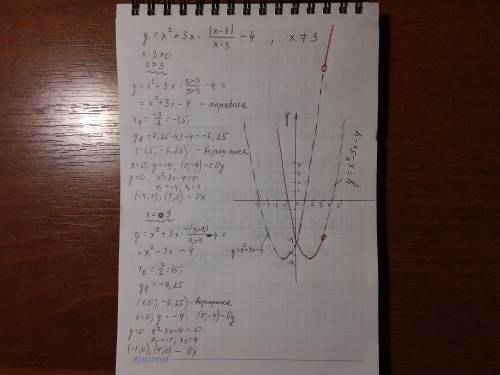 y = x² + 3x · |x-3|/(x-3) - 4 , x ≠ 3
x-3>0
x>3
y = x² + 3x · (x-3)/(x-3) - 4 =
= x² + 3x - 4 - парабола
x_в = -3/2 = -1,5;
y_в = 2,25-4,5-4 = -6,25
(-1,5; -6,25) - вершина
x=0; y=-4, (0;-4) - Oy
y=0 x²+3x-4=0
x₁=-4; x₂=1
(-4;0), (1;0) - Ox
x<3
y = x² + 3x · -(x-3)/(x-3) - 4 =
= x² - 3x - 4
x_в = 3/2 = 1,5;
y_в = -6,25
(1,5; -6,25) - вершина
x=0; y=-4. (0;-4) - Oy
y=0 x²-3x-4=0
x₁=-1; x₂=4
(-1;0), (4;0) - Ox
y
y=x²-3x-4
y=x²+3x-4